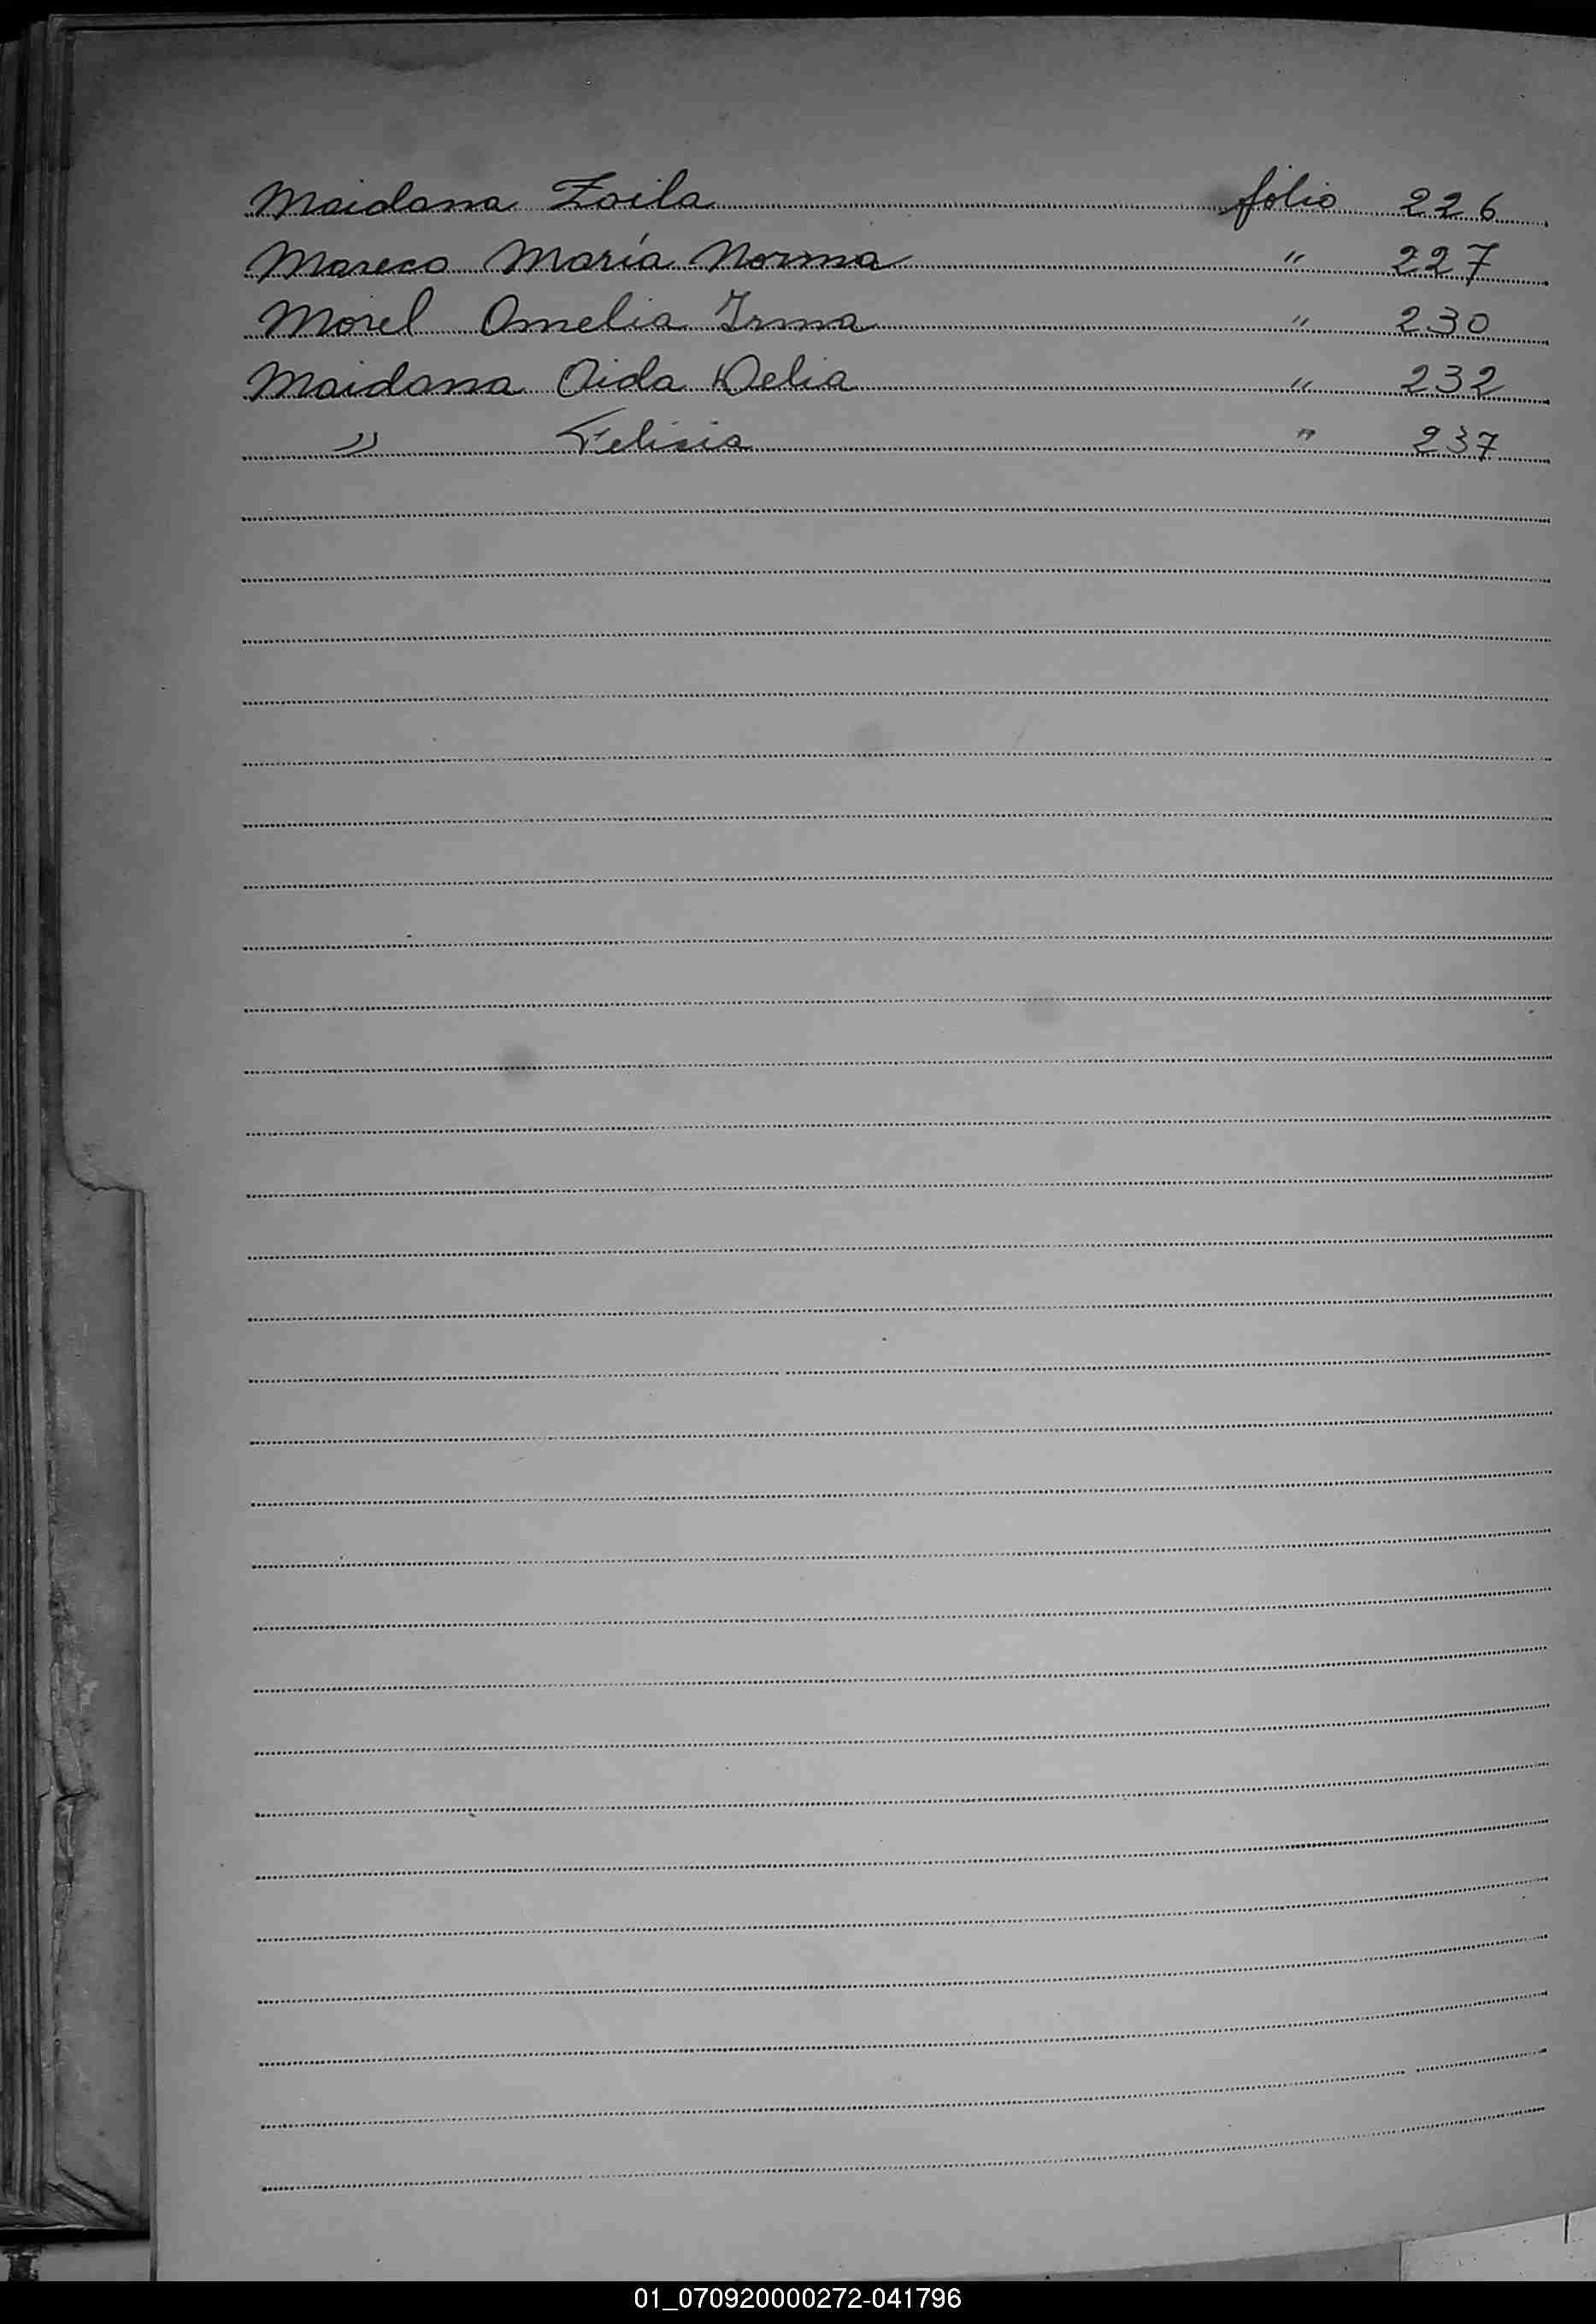 Maidana Zoila folio 226
Mareco María Norma " 227
Morel Amelia Irma " 230
Maidana Aida Delia " 232
" Felicia " 237
01_070920000272-041796